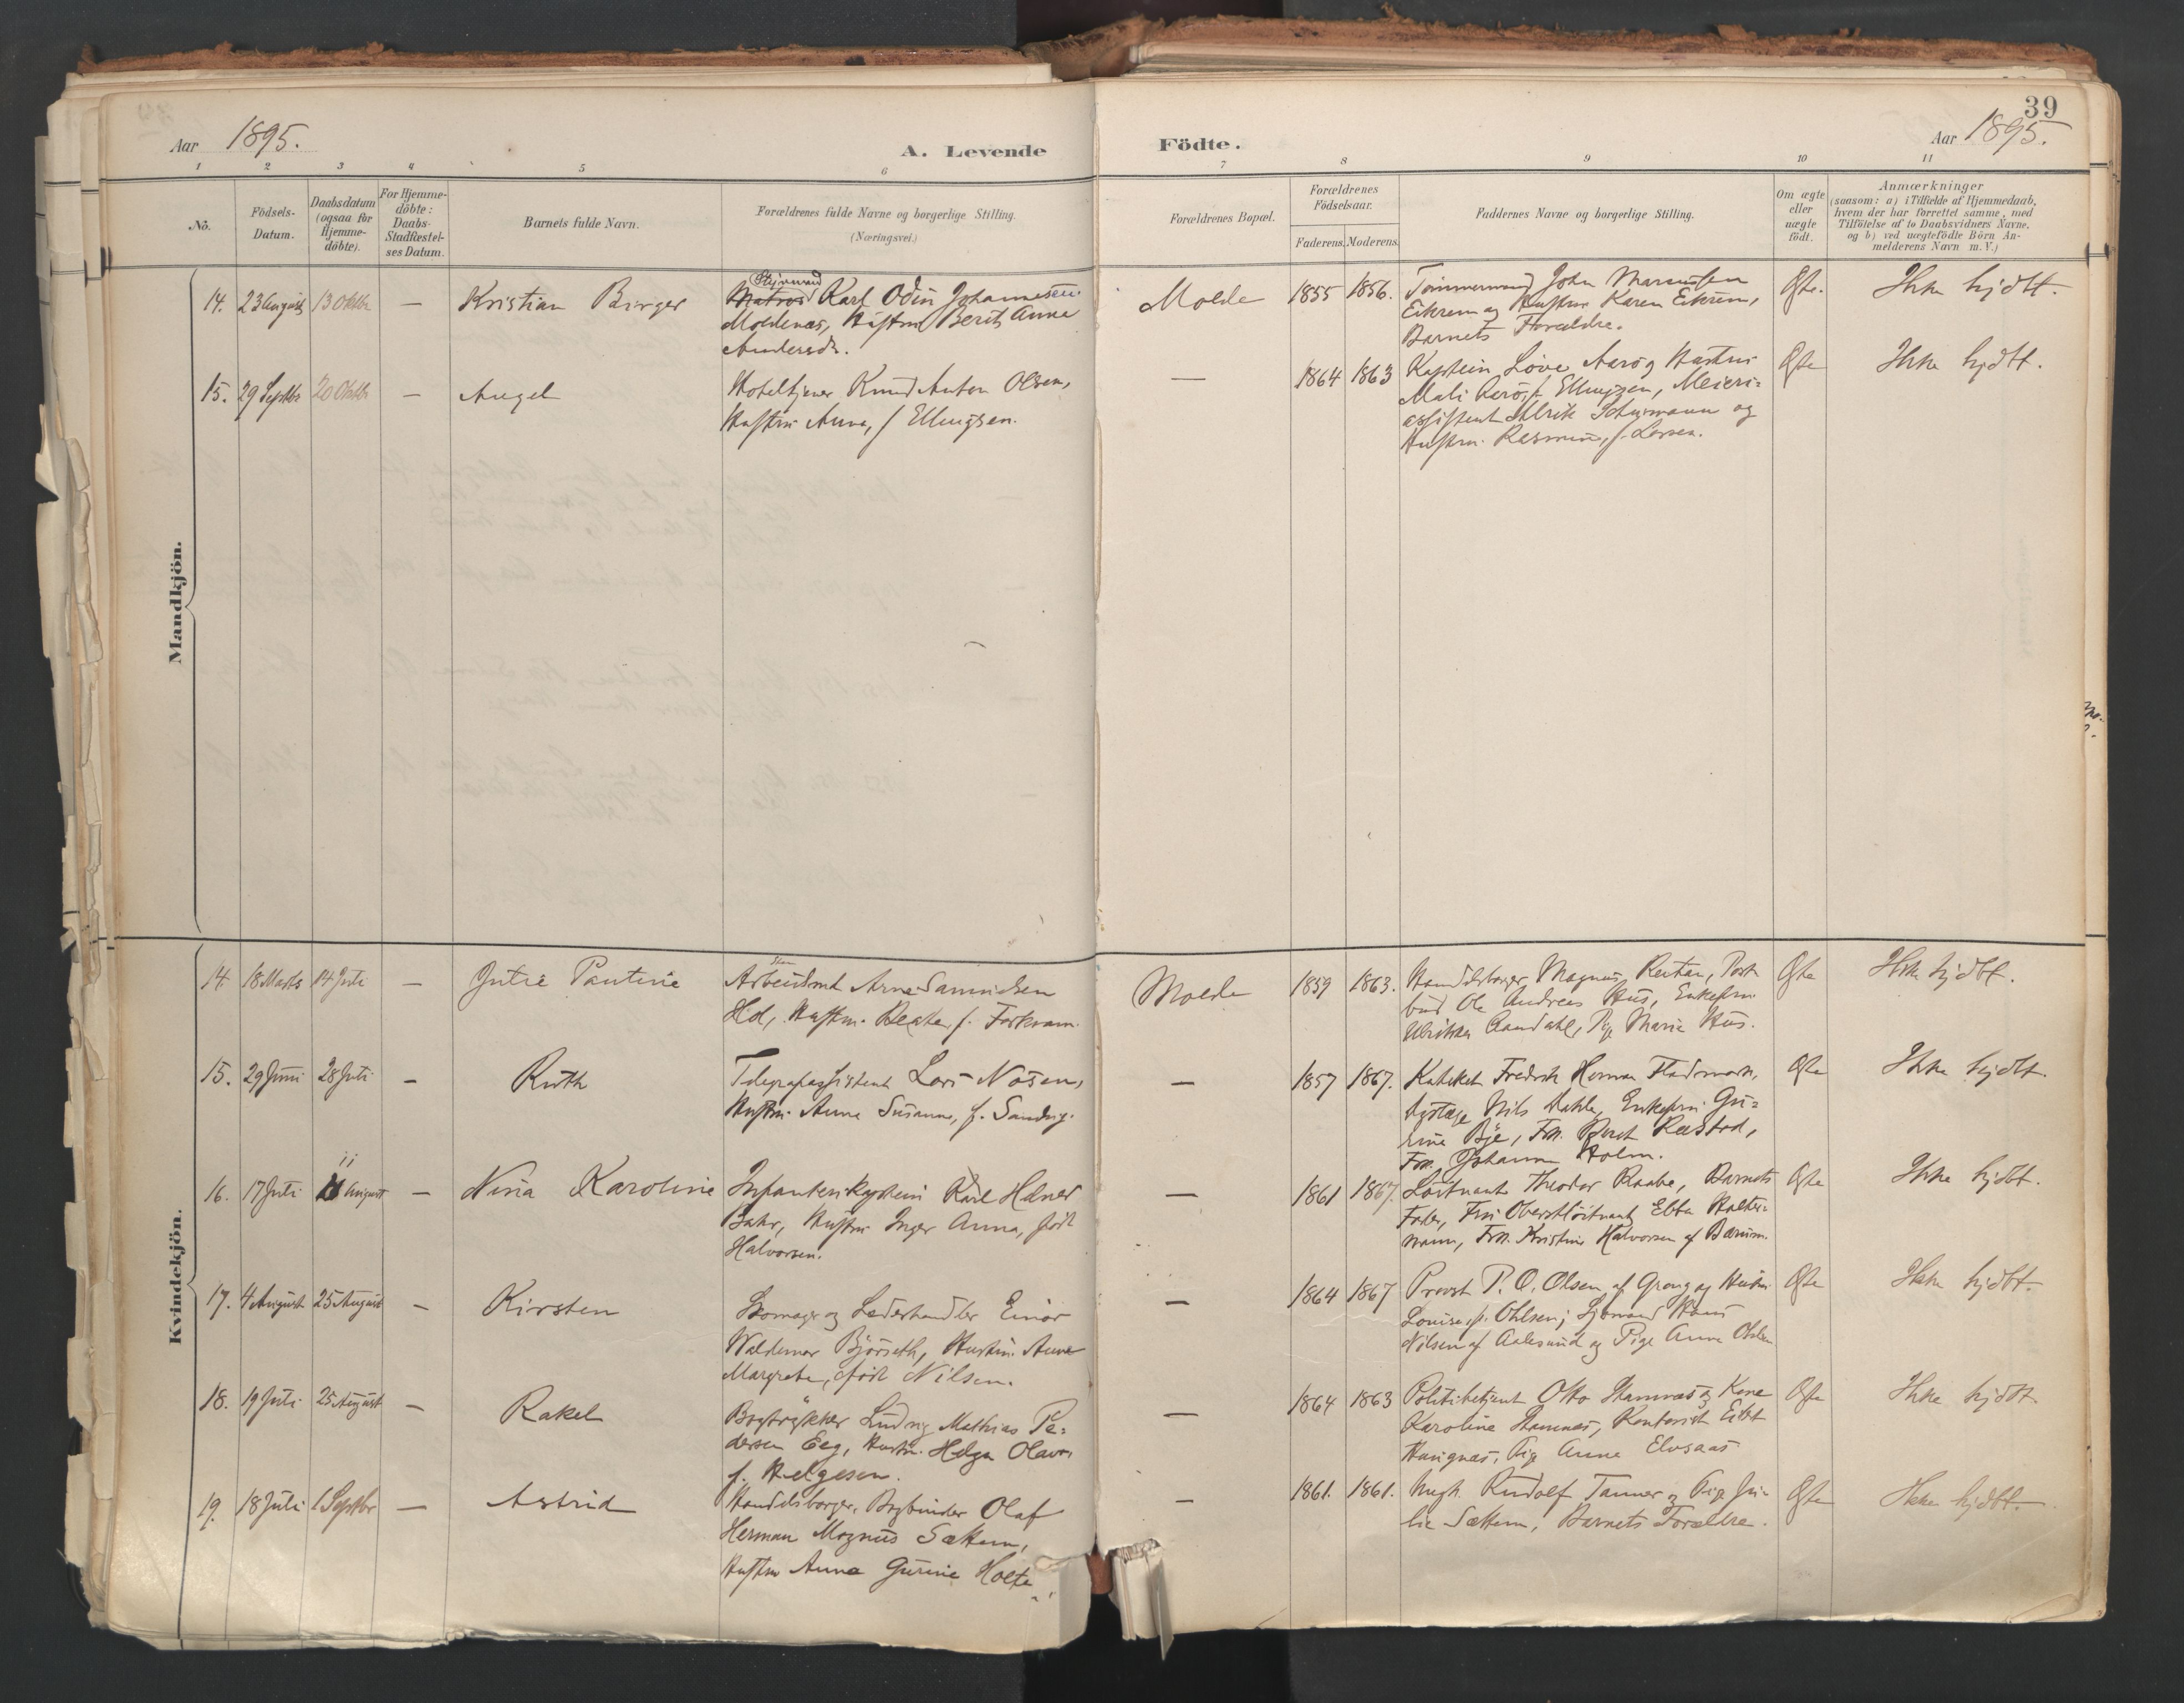 39
Aar 1895.
A. Levende Födte.
Aar 1895.
1 2 3 4 5 6 7 8 9 10 11
No.
Födsels-
Datum.
Daabsdatum
(ogsaa for
Hjemme-
döbte).
For Hjemme-
döbte:
Daabs-
Stadfæstel-
ses Datum.
Barnets fulde Navn.
Forældrenes fulde Navne og borgerlige Stilling.
(Næringsvei.)
Forældrenes Bopæl.
Forældrenes
Födselsaar.
Faderens. Moderens.
Faddernes Navne og borgerlige Stilling.
Om ægte
eller
uægte
født.
Anmærkninger
(saasom: a) i Tilfælde af Hjemmedaab,
hvem der har forrettet samme, med
Tilföielse af to Daabsvidners Navne,
og b) ved uægtefödte Börn An-
melderens Navn m. V.)
Mandkjön.
14. 23 August 13 Oktbr — Kristian Birger
Styrmand
Matros Karl Odin Johannesen
Moldenæs, Hustru Berit Anna
Andersdr.
Molde 1855 1856.
Tömmermand John
Eikrem og Hustru Karen Eikrem,
Barnets Forældre.
Ægte. Ikke hjdbt.
15. 29 Septbr 20 Oktbr — Angel
Hoteltjener Knud Anton Olsen,
Hustru Anna, f Ellingsen.
— 1864 1863
Kaptein Löve Aarö og Hustru
Mali Aarö, f. Ellingsen, Meieri-
assistent Ulrik og
Hustru Rasmine, f. Larsen.
Ægte Ikke hjdbt.
Kvindekjön.
14. 18 Marts 14 Juli — Jutie Pauline
Arne Samuelsen
Hol, Hustru Beate, f.
Molde 1859 1863.
Handelsborger Magnus Restan, Post-
bud Ole Andreas Hus, Enkefru
Ulrikke Aandahl, Pige Marie Hus.
Ægte Ikke hjdbt.
15. 29 Juni 28 Juli — Ruth
Telegrafassistent Lars Nosen,
Hustru Anna Susanna, f. Sandvig.
— 1857 1867.
Kateket Fredrik Herman Fladmark,
Nils Dahle, Enkefru Gu-
rine Bje, Frk. Berit Ræstad,
Frk. Johanna Holm.
Ægte Ikke hjdbt.
16. 17 Juli 11 August — Nina Karoline
Infanterikaptein Karl Hilmer
Bahr, Hustru Inger Anna, född
Halvorsen.
— 1861 1867.
Löitnant Theodor Raabe, Barnets
Fader, Fru Oberstlöitnant Ebba Holter-
mann, Frk. Kristine Halvorsen af Bærum.
Ægte Ikke hjdbt.
17. 4 August 25 August — Kirsten
Skomager og Læderhandler Einar
Waldemar Björseth, Hustru Anna
Margrete, född Nilsen.
— 1864 1867
Provst P. O. Olsen af Grong og Hustru
Louise, f. Ohlsen; Sjömand Hans
Nilsen af Aalesund og Pige Anna Ohlsen
Ægte Ikke hjdbt.
18. 19 Juli 25 August — Rakel
Bogtrykker Ludvig Mathias Pe-
dersen Eeg, Hustru Helga Olava
f. Helgesen.
— 1864 1863
Politibetjent Otto Stamnæs og Kone
Karoline Stamnes, Kontorist
Haugnæs, Pige Anna Elvsaas
Ægte Ikke hjdbt.
19. 18 Juli 1 Septbr — Astrid
Handelsborger, Bogbinder Olaf
Herman Magnus Sættem,
Hustru Anna Gurine Holte
— 1861. 1861.
Ungk. Rudolf Tanner og Pige Ju-
lie Sættem, Barnets Forældre.
Ægte Ikke hjdbt.